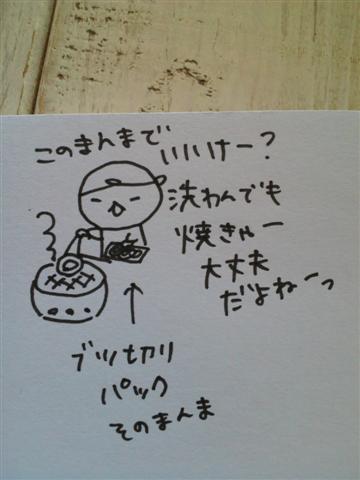 このまんまで
いいけー?
洗わんでも
焼きゃー
大丈夫
だよねーっ
ブツ切り
パック
そのまんま